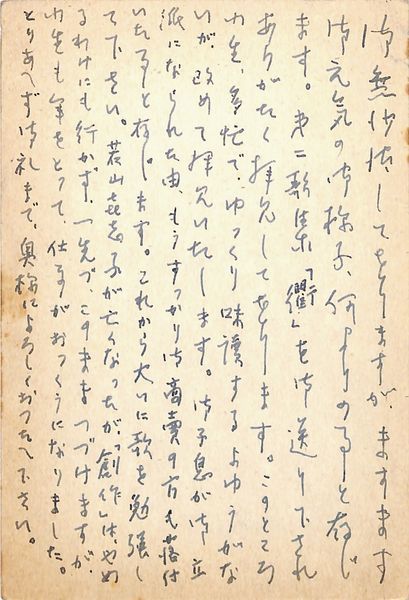 御無沙汰してをりますが、ますます
御元気の御様子、何よりの事と存じ
ます。第二歌集「衢」を御送り下され
ありがたく拝見してをります。このところ
小生、多忙で、ゆっくり味読するよゆうがな
いが、改めて拝見いたします。御子息が御立
派になられた由、もうすっかり御商売の方も落付
いた事と存じます。これから大いに歌を勉強し
て下さい。若山喜志子が亡くなったが、「創作」はやめ
るわけにも行かず、一先づ、このままつづけますが、
小生も年をとって、仕事がおっくうになりました。
とりあへず御礼まで、奥様によろしくおつたへ下さい。